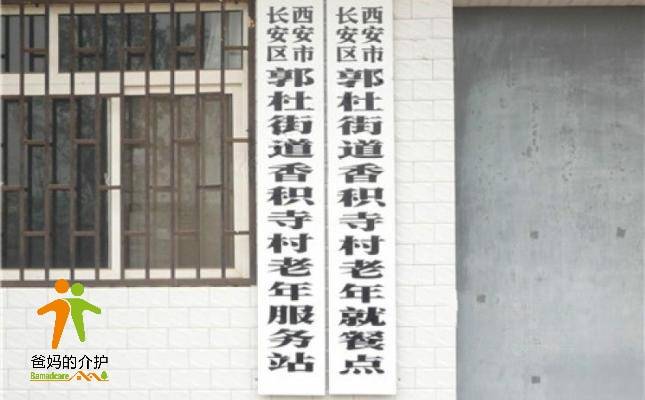 西安市
长安区
郭杜街道香积寺村老年服务站
西安市
长安区
郭杜街道香积寺村老年就餐点
爸妈的介护
Bamadcare